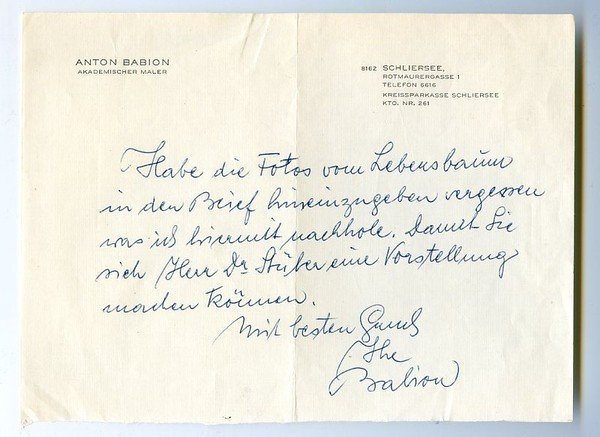 ANTON BABION
AKADEMISCHER MALER
8162 SCHLIERSEE,
ROTMAURERGASSE 1
TELEFON 6616
KREISSPARKASSE SCHLIERSEE
KTO. NR. 261
Habe die Fotos vom Lebensbaum
in den Brief hineinzugeben vergessen
was ich hiermit nachhole. Damit Sie
sich Herr Dr Stüber eine Vorstellung
machen können.
Mit besten Gruß
Ihr
Babion